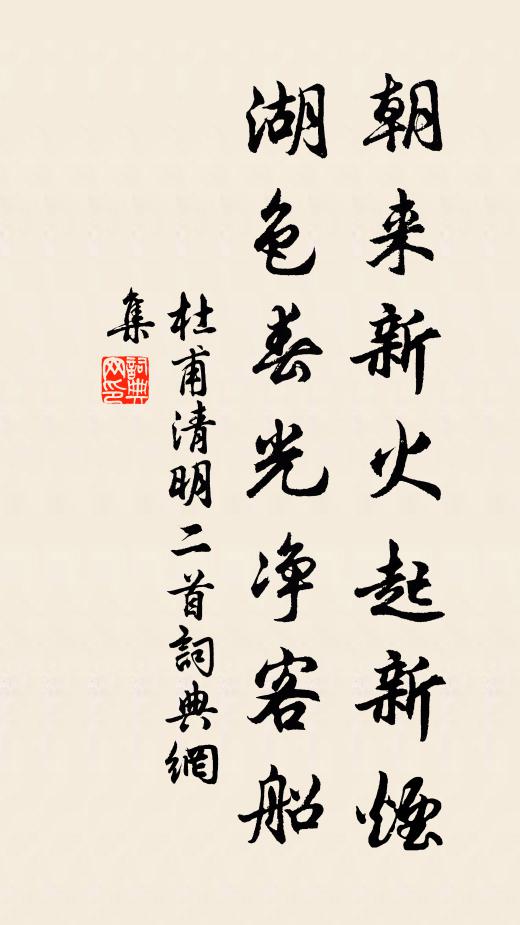 朝来新火起新煙
湖色春光净客船
杜甫清明二首詞典網
集
詞典
网印